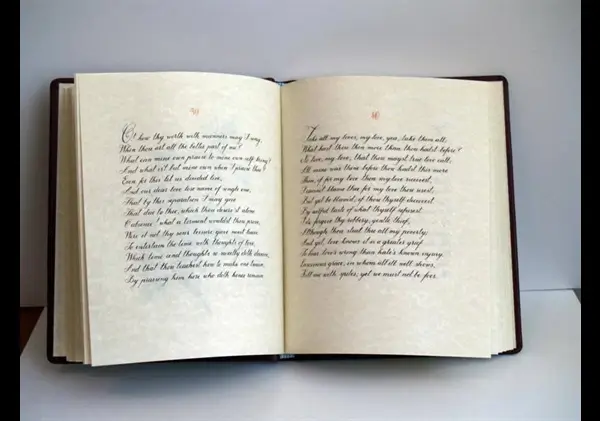 39
O! how thy worth with manners may I sing,
When thou art all the better part of me?
What can mine own praise to mine own self bring?
And what is't but mine own when I praise thee?
Even for this let us divided live,
And our dear love lose name of single one,
That by this separation I may give
That due to thee, which thou deserv'st alone.
O absence! what a torment wouldst thou prove,
Were it not thy sour leisure gave sweet leave
To entertain the time with thoughts of love,
Which time and thoughts so sweetly doth deceive,
And that thou teachest how to make one twain,
By praising him here who doth hence remain.
40
Take all my loves, my love, yea, take them all;
What hast thou then more than thou hadst before?
No love, my love, that thou mayst true love call;
All mine was thine before thou hadst this more.
Then, if for my love thou my love receivest,
I cannot blame thee for my love thou usest;
But yet be blamed, if thou thyself deceivest
By wilful taste of what thyself refusest.
I do forgive thy robbery, gentle thief,
Although thou steal thee all my poverty;
And yet, love knows it is a greater grief
To bear love's wrong than hate's known injury.
Lascivious grace, in whom all ill well shows,
Kill me with spites; yet we must not be foes.